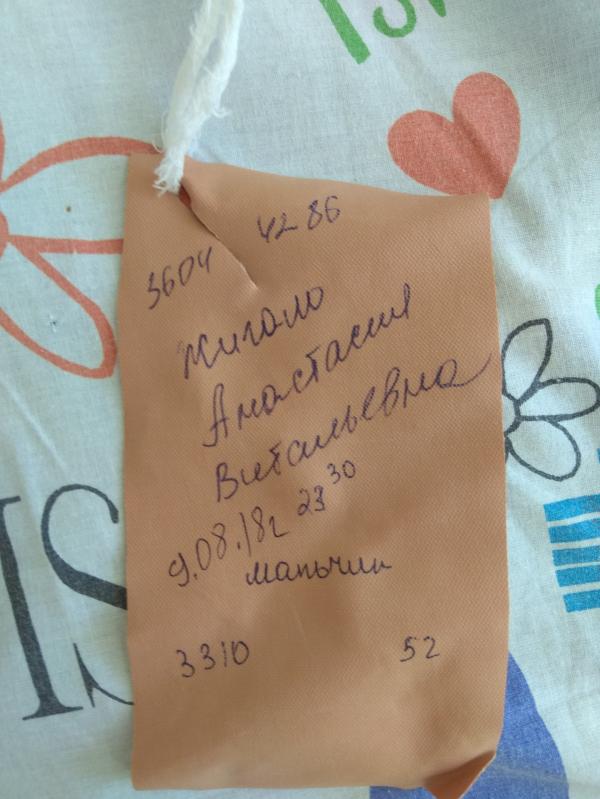 3604 4286
Жигало
Анастасия
Витальевна
9.08.18г 23 30
мальчик
3310 52